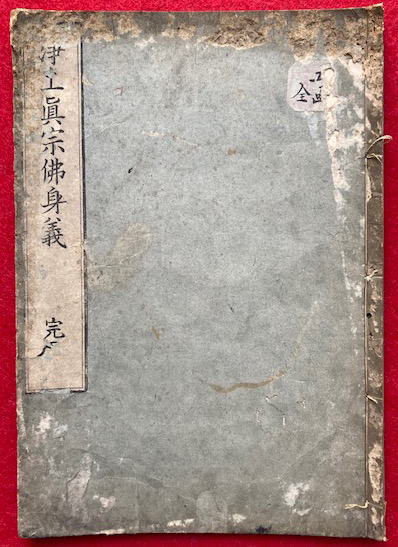 淨土眞宗佛身義
完
全